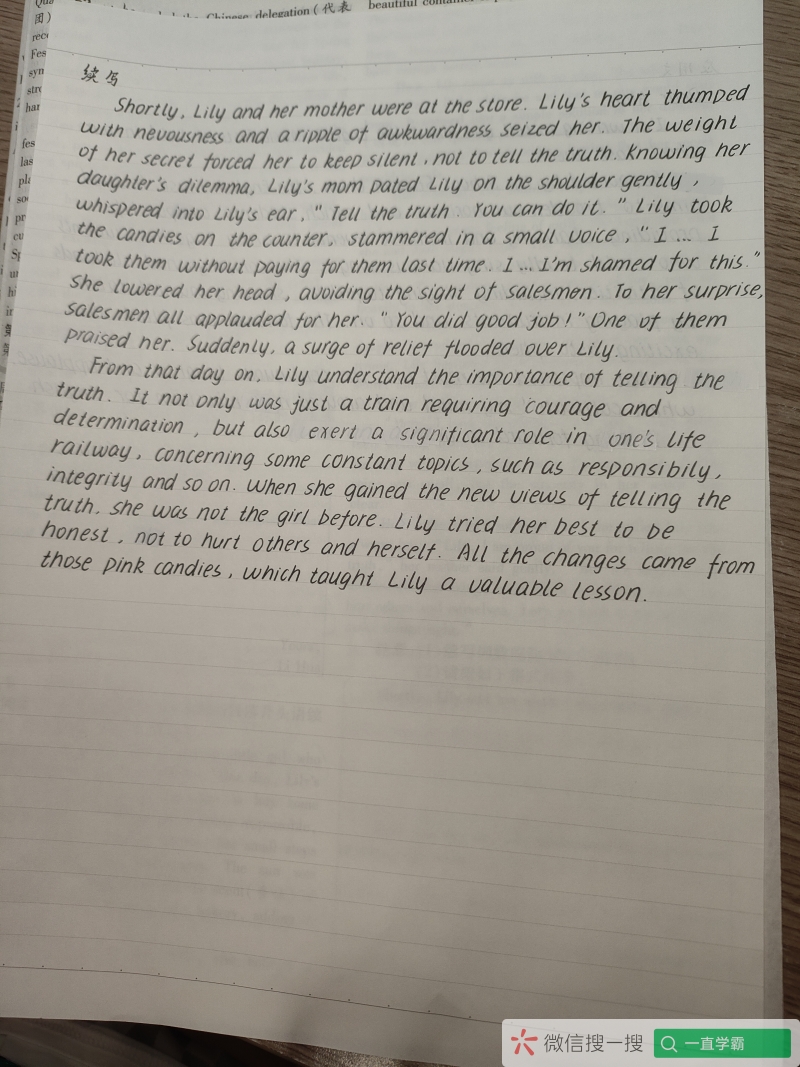 Chinese delegation(代表
beautiful
团)
Fes
syn
har
fes
las
续写
Shortly, Lily and her mother were at the store. Lily's heart thumped
with nevousness and a ripple of awkwardness seized her. The weight
of her secret forced her to keep silent, not to tell the truth. Knowing her
daughter's dilemma, Lily's mom pated Lily on the shoulder gently,
whispered into Lily's ear, "Tell the truth. You can do it." Lily took
the candies on the counter, stammered in a small voice, "I ... I
took them without paying for them last time. I ... I'm shamed for this."
She lowered her head, avoiding the sight of salesmen. To her surprise,
salesmen all applauded for her. "You did good job!" One of them
praised her. Suddenly, a surge of relief flooded over Lily.
From that day on, Lily understand the importance of telling the
truth. It not only was just a train requiring courage and
determination, but also exert a significant role in one's life
railway, concerning some constant topics, such as responsibily,
integrity and so on. When she gained the new views of telling the
truth, she was not the girl before. Lily tried her best to be
honest, not to hurt others and herself. All the changes came from
those pink candies, which taught Lily a valuable lesson.
微信搜一搜
一直学霸